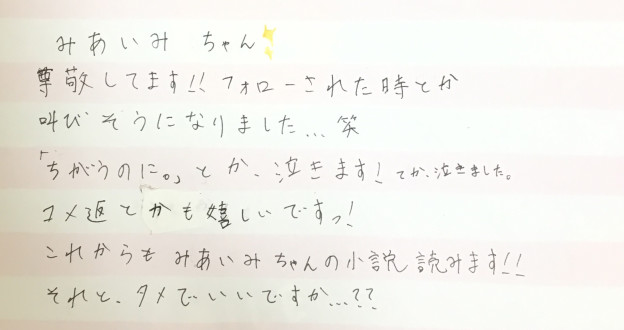 みあいみ ちゃん
尊敬してます!! フォローされた時とか
叫びそうになりました... 笑
「ちがうのに。」とか、泣きます! てか、泣きました。
コメ返とかも嬉しいですっ!
これからも みあいみちゃんの小説 読みます!!
それと、タメでいいですか...??